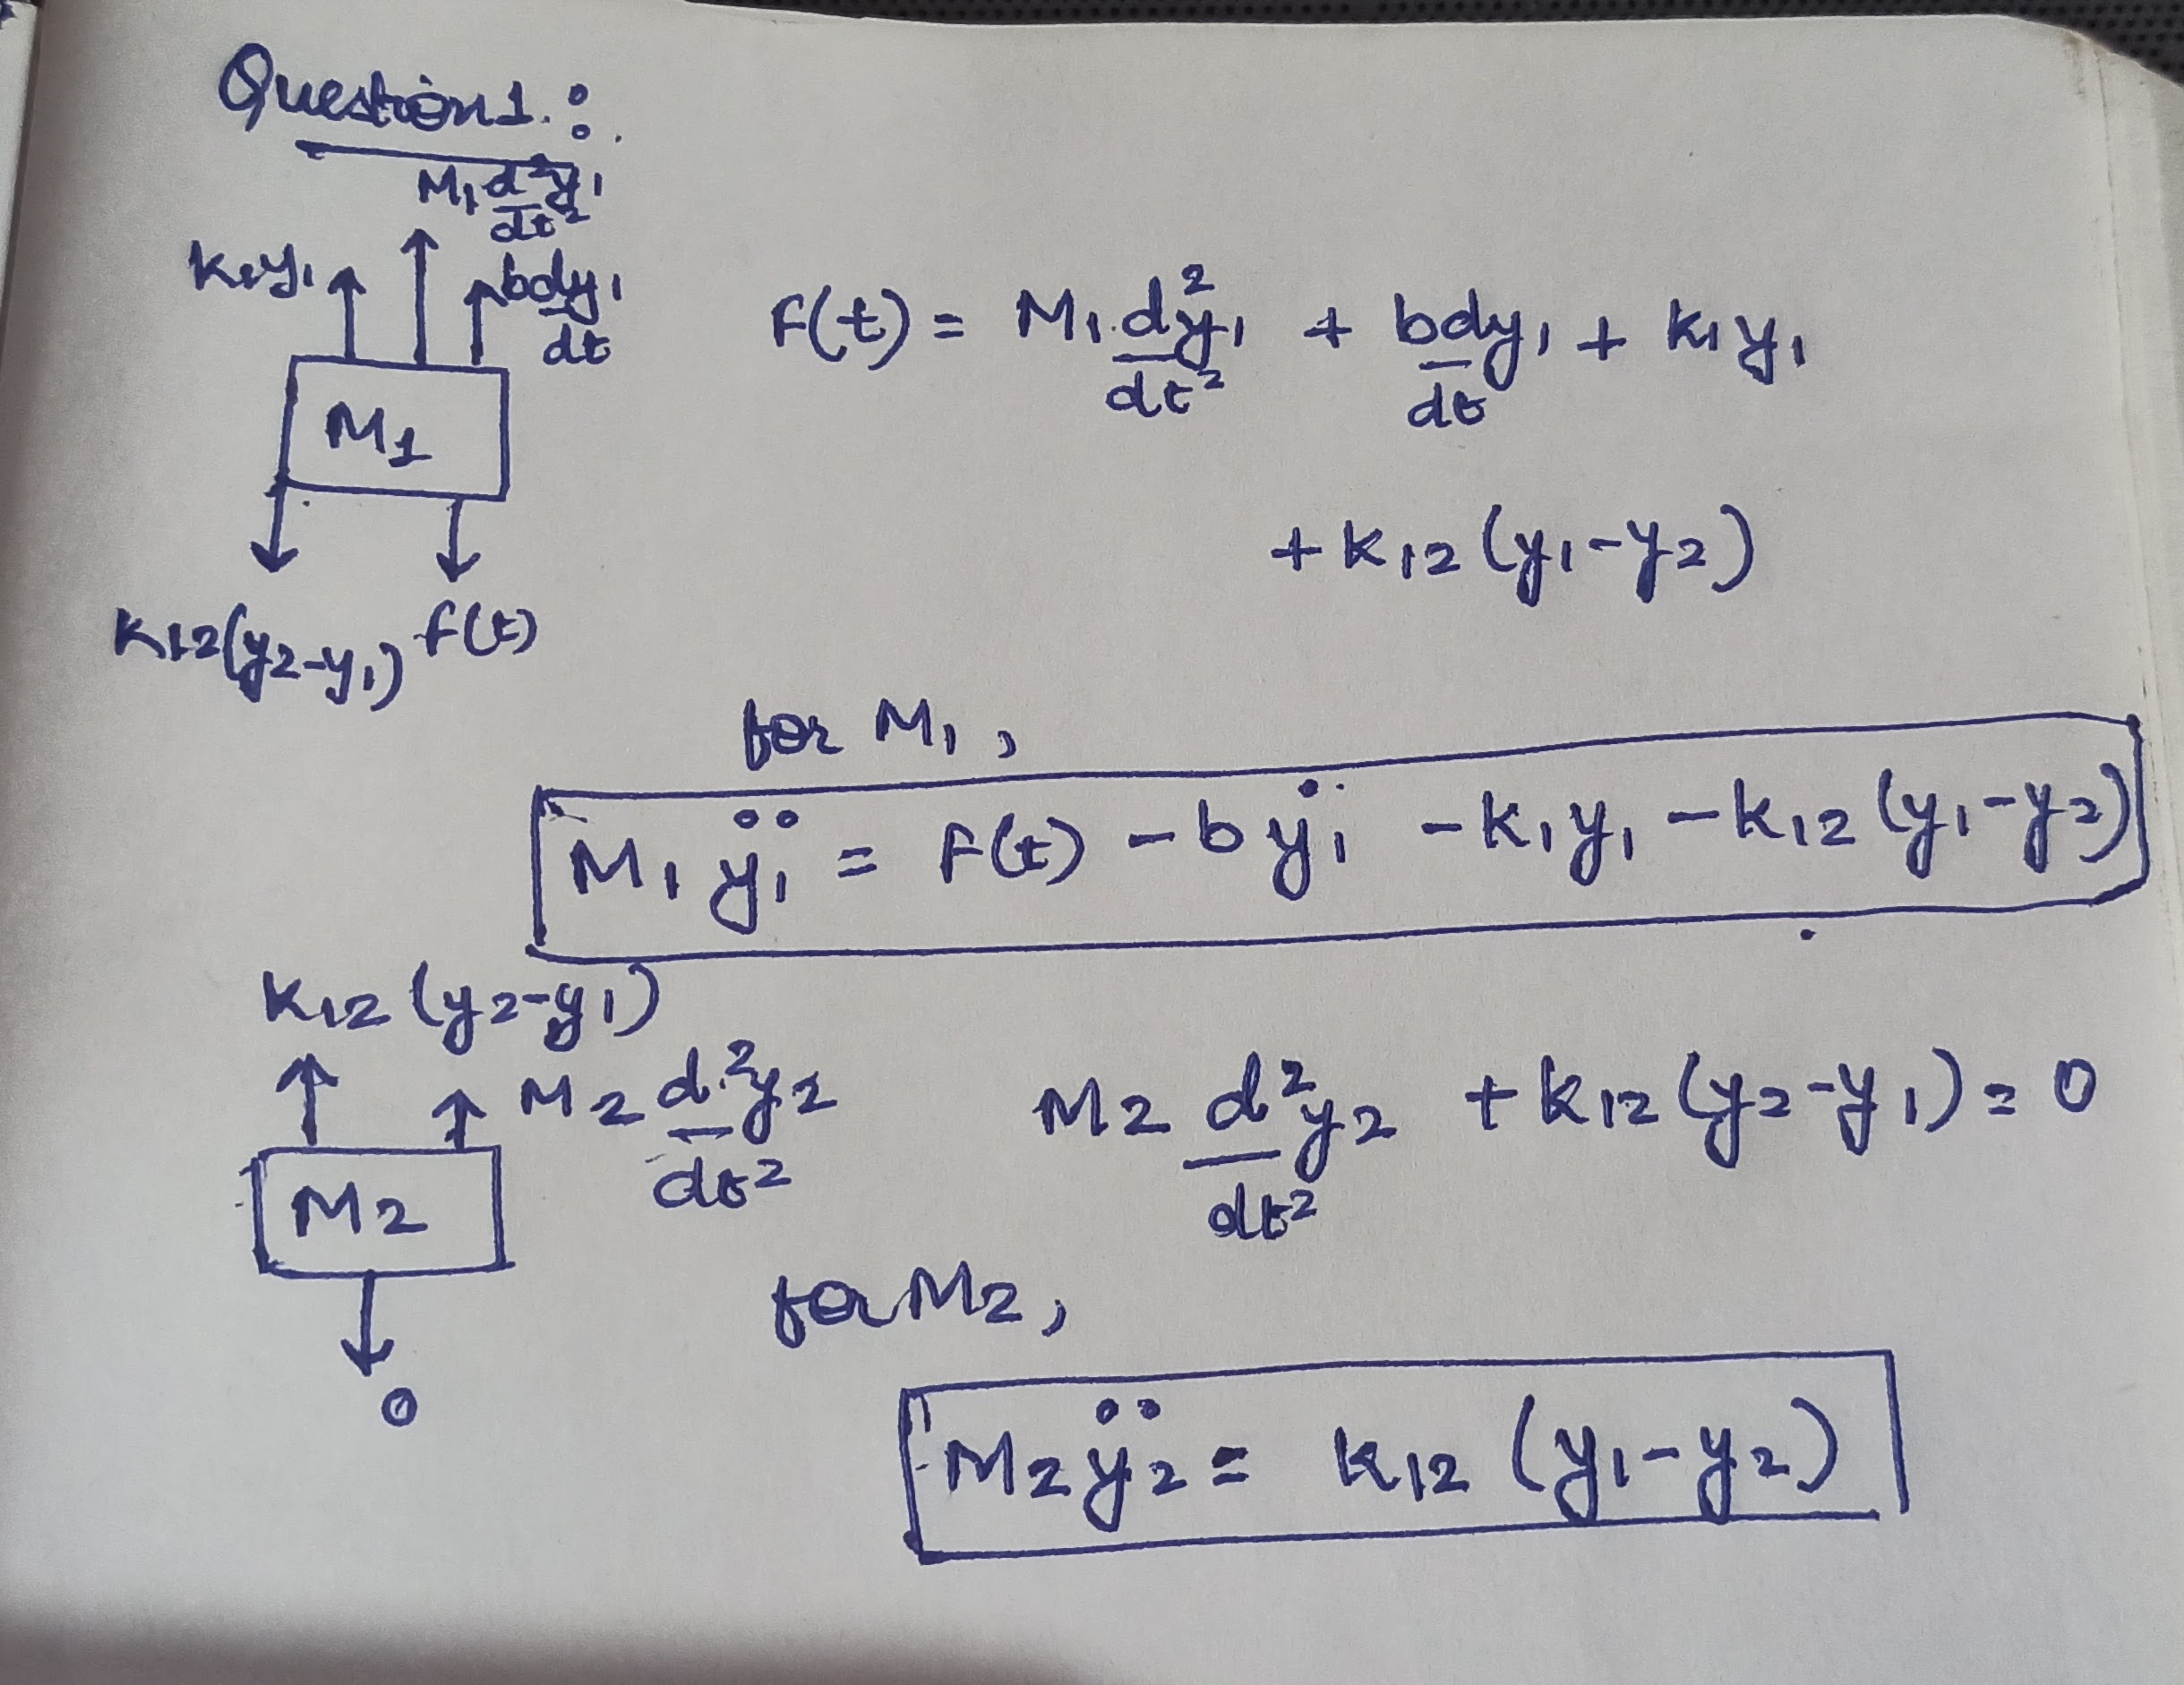 Question 1. :
M₁ d²y₁/dt²
K₁y₁
b dy₁/dt
M1
K₁₂(y₂-y₁) f(t)
F(t) = M₁ d²y₁/dt² + b dy₁/dt + K₁y₁
+ K₁₂(y₁-y₂)
for M₁,
M₁ÿ₁ = F(t) - bẏ₁ - K₁y₁ - K₁₂(y₁-y₂)
K₁₂(y₂-y₁)
M₂ d²y₂/dt²
M2
0
M₂ d²y₂/dt² + K₁₂(y₂-y₁) = 0
for M₂,
M₂ÿ₂ = K₁₂(y₁-y₂)